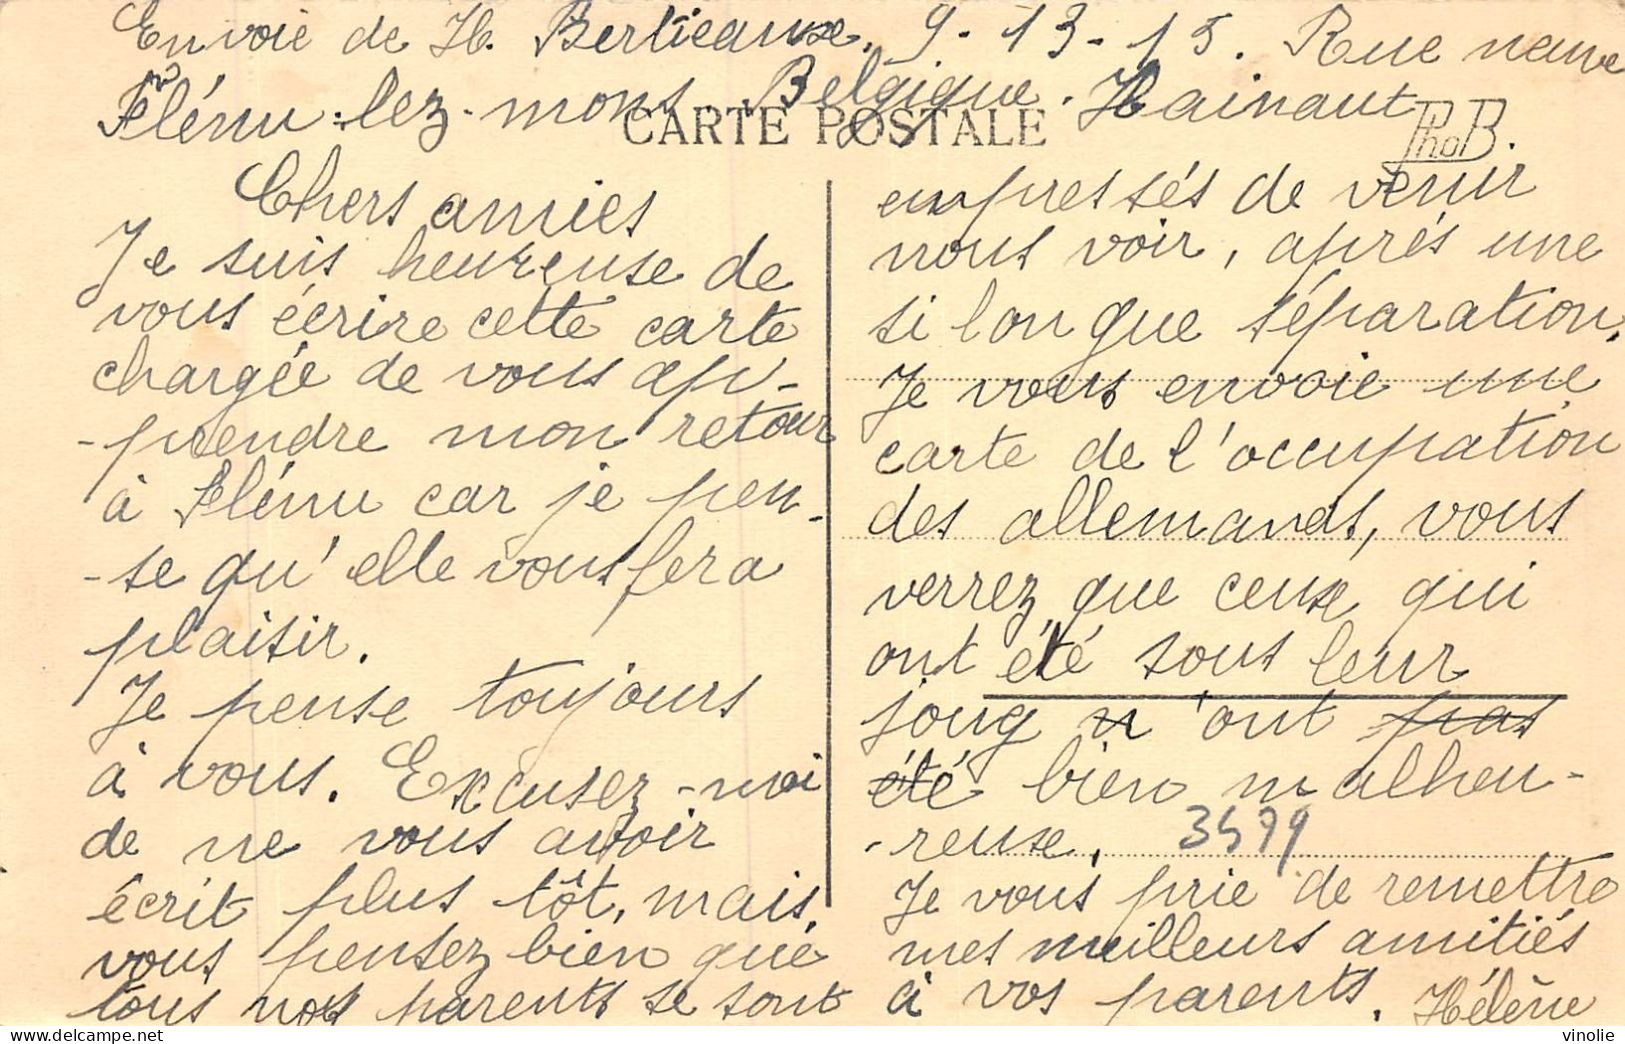 Envoie de H. Berlieause. 9-13-15. Rue neuve
Flénu-lez-mons. Belgique. Hainaut
CARTE POSTALE
PhoB.
Chers amies
Je suis heureuse de
vous écrire cette carte
chargée de vous ap-
-prendre mon retour
à Flénu car je pen-
-se qu'elle vous fera
plaisir.
Je pense toujours
à vous. Excusez-moi
de ne vous avoir
écrit plus tôt, mais,
vous pensez bien que
tous nos parents se sont
empressés de venir
nous voir, après une
si longue séparation.
Je vous envoie une
carte de l'occupation
des allemands, vous
verrez que ceuse qui
ont été sous leur
joug n'ont pas
été bien malheu-
-reuse.
3479
Je vous prie de remettre
mes meilleurs amitiés
à vos parents. Hélène
vinolie